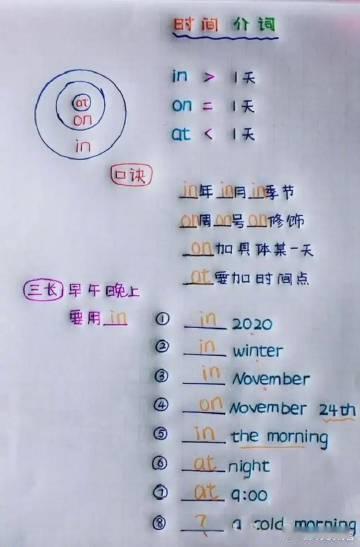 时间介词
in > 1天
on = 1天
at < 1天
at
on
in
口诀
in年 in月 in季节
on周 on号 on修饰
on加具体某一天
at要加时间点
三长 早午晚上
要用in
① in 2020
② in winter
③ in November
④ on November 24th
⑤ in the morning
⑥ at night
⑦ at 9:00
⑧ ? a cold morning